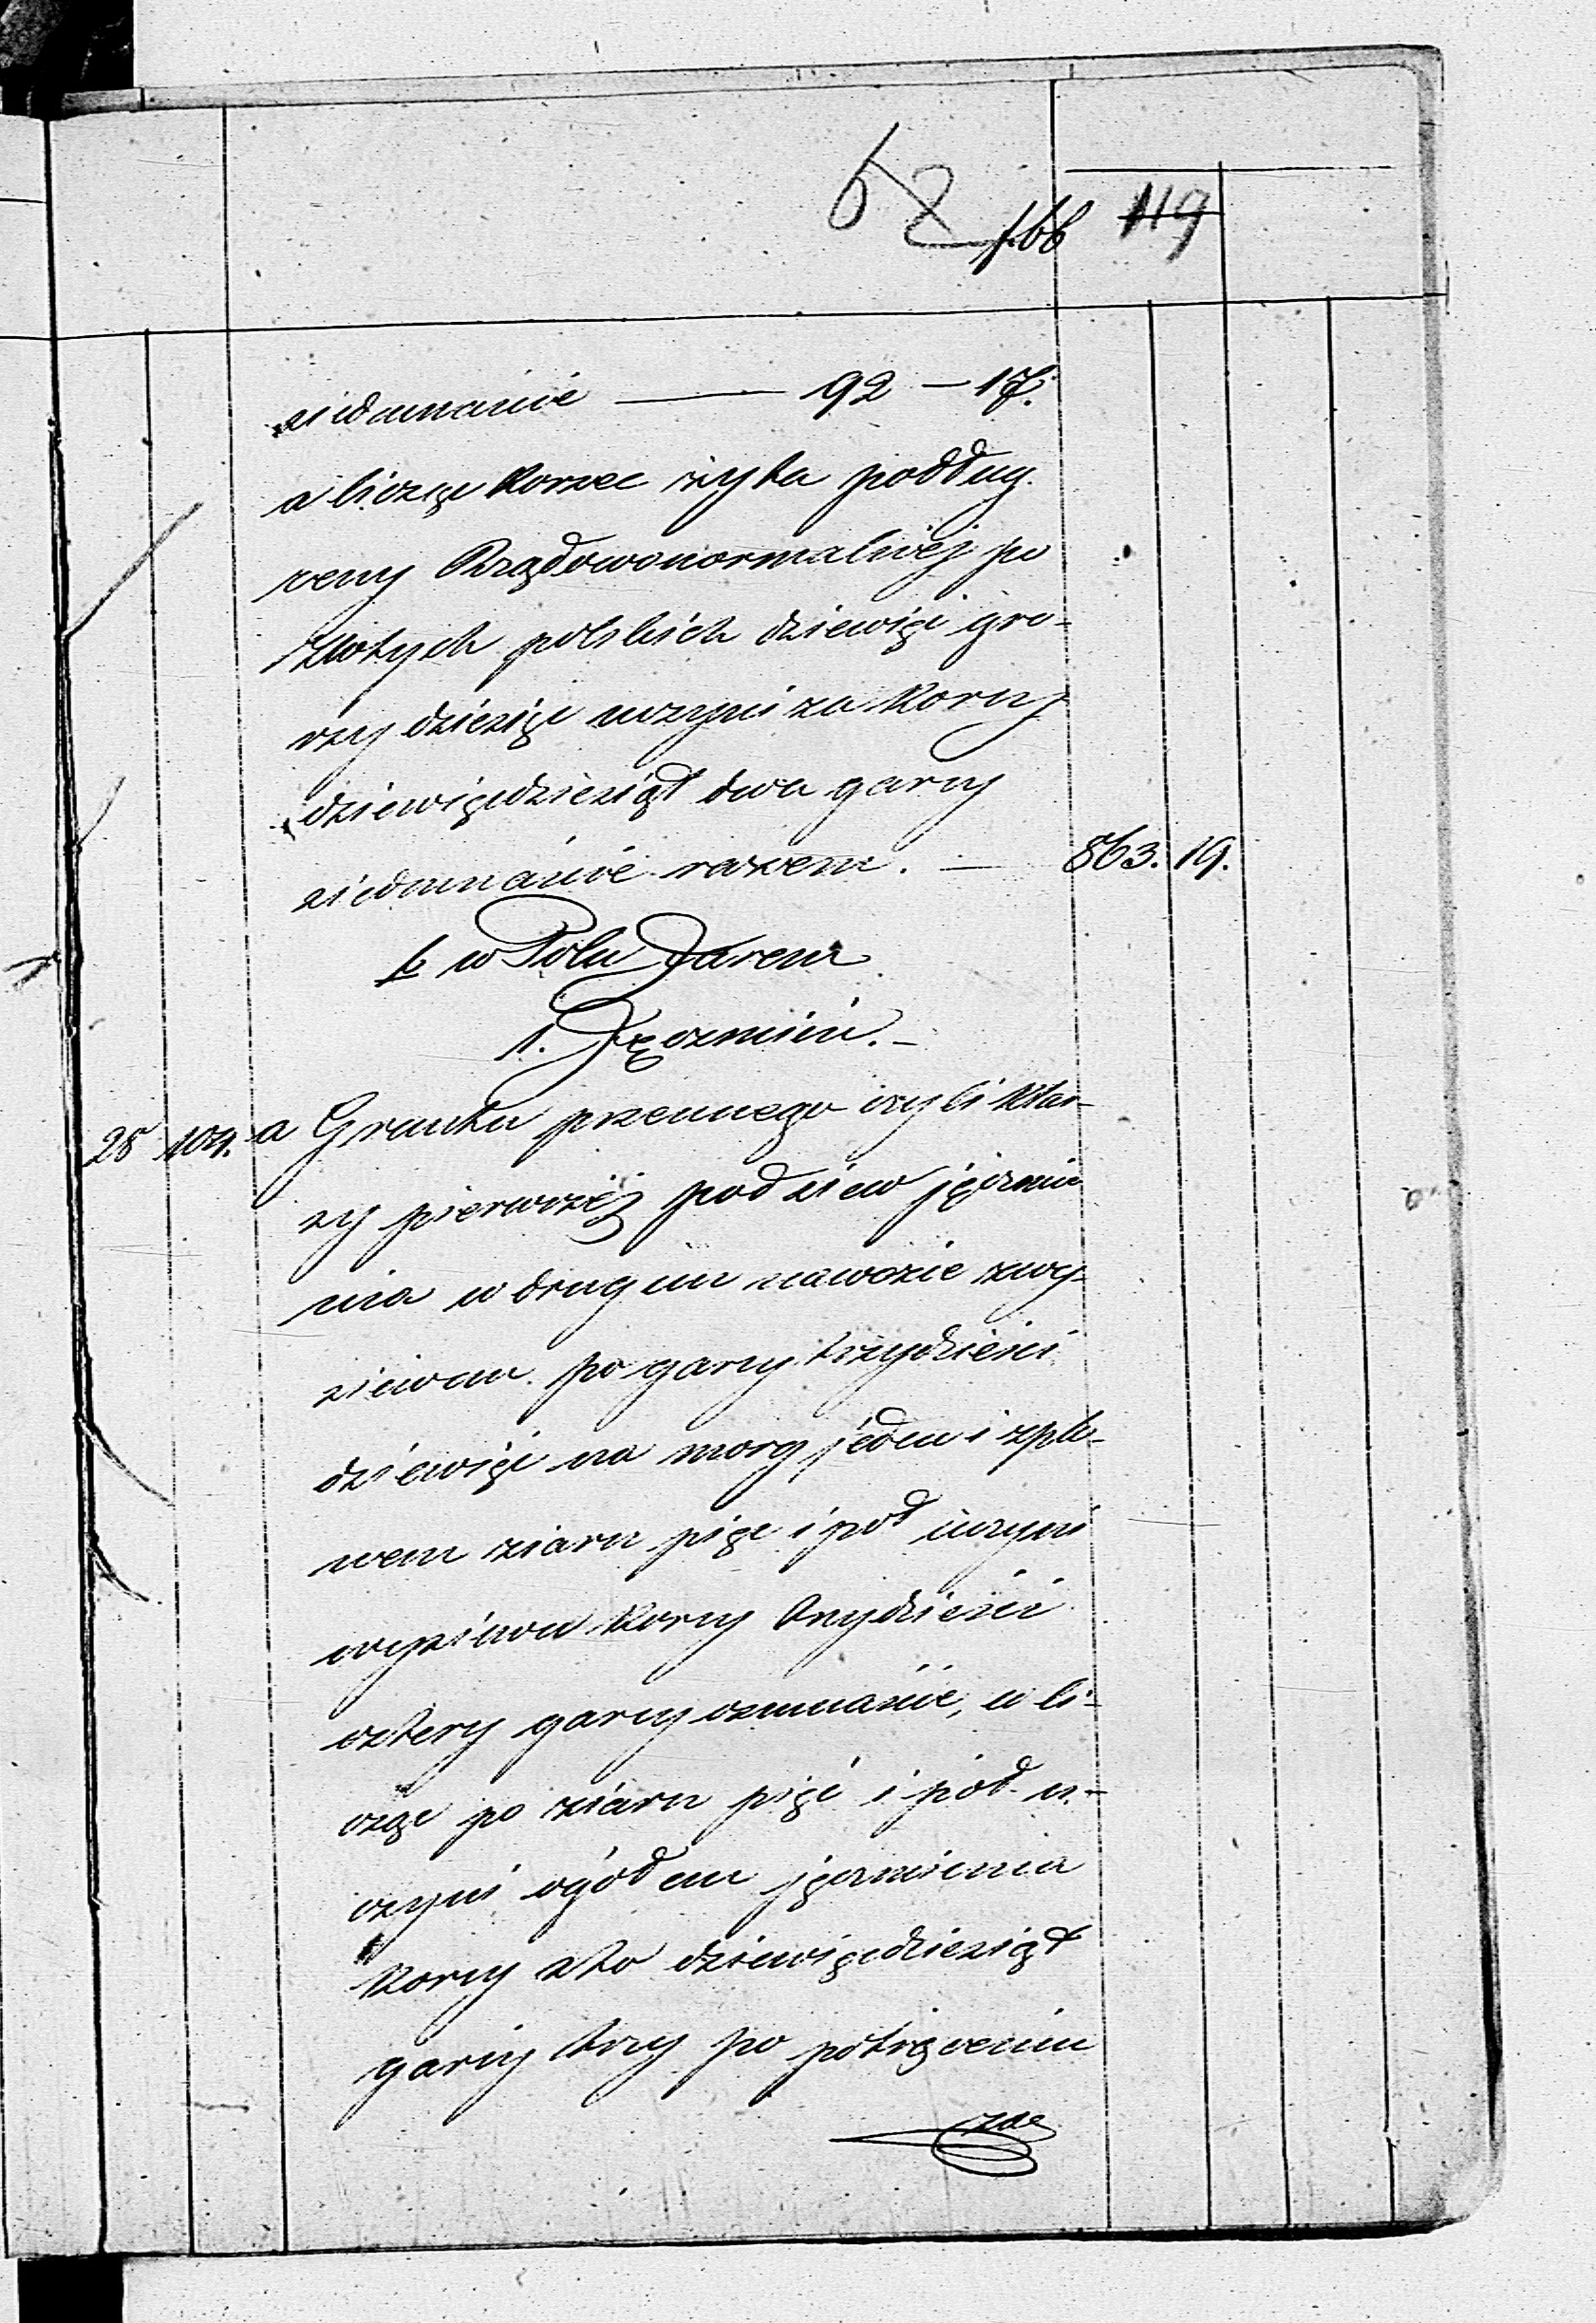 68 f. 66 119
siedmnaście — 92 — 17.
a licząc Korzec żyta podług
ceny Rządowonormalnéj po
złotych polskich dziewięć gro-
szy dziesięć uczyni za Korcy
dziewięćdziesiąt dwa garcy
siedmnaście razem. — 863. 19.
b w Polu Jarem
1. Jęczmień. -
28 104. a Gruntu pszennego czyli Klas-
sy pierwszéj pod siew jęczmie
nia w drugim nawozie zwy-
siewem po garcy trzydzieści
dziewięć na morg jeden i zplo-
nem ziarn pięć i pół uczyni
wysiewu Korcy trzydzieści
cztery garcy ośmnaście, a li-
cząc po ziarn pięć i pół u-
czyni ogółem jęczmienia
Korcy sto dziewięćdziesiąt
garcy trzy po potrąceniu
zaś